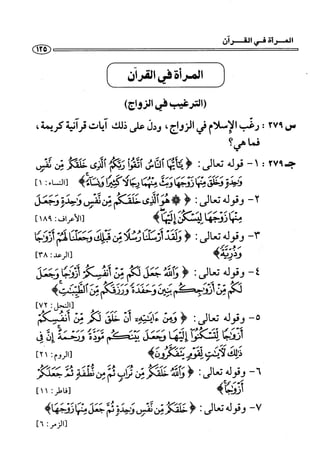 المرأة في القرآن
١٢٥
المرأة في القرآن
(الترغيب في الزواج)
س ٢٧٩ : رغّب الإسلام في الزواج، ودلّ على ذلك آيات قرآنية كريمة،
فما هي؟
جـ ٢٧٩: ١- قوله تعالى: ﴿ يَٰٓأَيُّهَا ٱلنَّاسُ ٱتَّقُوا۟ رَبَّكُمُ ٱلَّذِى خَلَقَكُم مِّن نَّفْسٍ
وَٰحِدَةٍ وَخَلَقَ مِنْهَا زَوْجَهَا وَبَثَّ مِنْهُمَا رِجَالًا كَثِيرًا وَنِسَآءً ﴾ [النساء: ١]
٢- وقوله تعالى: ﴿ هُوَ ٱلَّذِى خَلَقَكُم مِّن نَّفْسٍ وَٰحِدَةٍ وَجَعَلَ
مِنْهَا زَوْجَهَا لِيَسْكُنَ إِلَيْهَا ﴾ [الأعراف: ١٨٩]
٣- وقوله تعالى: ﴿ وَلَقَدْ أَرْسَلْنَا رُسُلًا مِّن قَبْلِكَ وَجَعَلْنَا لَهُمْ أَزْوَٰجًا
وَذُرِّيَّةً ﴾ [الرعد: ٣٨]
٤- وقوله تعالى: ﴿ وَٱللَّهُ جَعَلَ لَكُم مِّنْ أَنفُسِكُمْ أَزْوَٰجًا وَجَعَلَ
لَكُم مِّنْ أَزْوَٰجِكُم بَنِينَ وَحَفَدَةً وَرَزَقَكُم مِّنَ ٱلطَّيِّبَٰتِ ﴾
[النحل: ٧٢]
٥- وقوله تعالى: ﴿ وَمِنْ ءَايَٰتِهِۦٓ أَنْ خَلَقَ لَكُم مِّنْ أَنفُسِكُمْ
أَزْوَٰجًا لِّتَسْكُنُوٓا۟ إِلَيْهَا وَجَعَلَ بَيْنَكُم مَّوَدَّةً وَرَحْمَةً إِنَّ فِى
ذَٰلِكَ لَءَايَٰتٍ لِّقَوْمٍ يَتَفَكَّرُونَ ﴾ [الروم: ٢١]
٦- وقوله تعالى: ﴿ وَٱللَّهُ خَلَقَكُم مِّن تُرَابٍ ثُمَّ مِن نُّطْفَةٍ ثُمَّ جَعَلَكُمْ
أَزْوَٰجًا ﴾ [فاطر: ١١]
٧- وقوله تعالى: ﴿ خَلَقَكُم مِّن نَّفْسٍ وَٰحِدَةٍ ثُمَّ جَعَلَ مِنْهَا زَوْجَهَا ﴾
[الزمر: ٦]